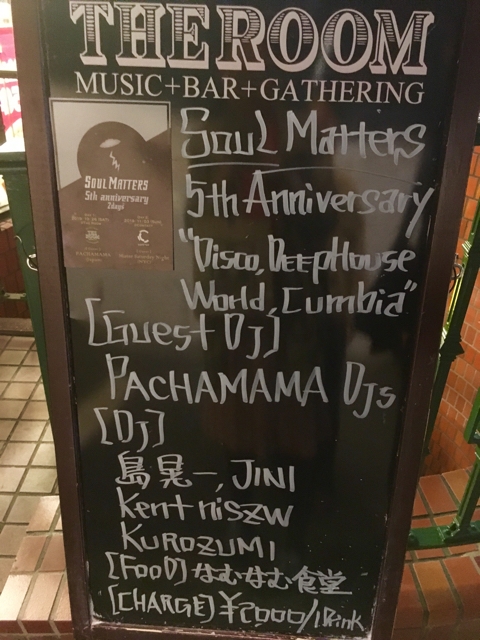 THE ROOM
MUSIC+BAR+GATHERING
Soul Matters
5th Anniversary
"Disco, DeepHouse
World, Cumbia"
[Guest DJ]
PACHAMAMA DJs
[DJ]
島晃一, JINI
Kent niszw
KUROZUMI
[FOOD] なむなむ食堂
[CHARGE] ¥2000/1Drink
SOUL MATTERS
5th anniversary
2days